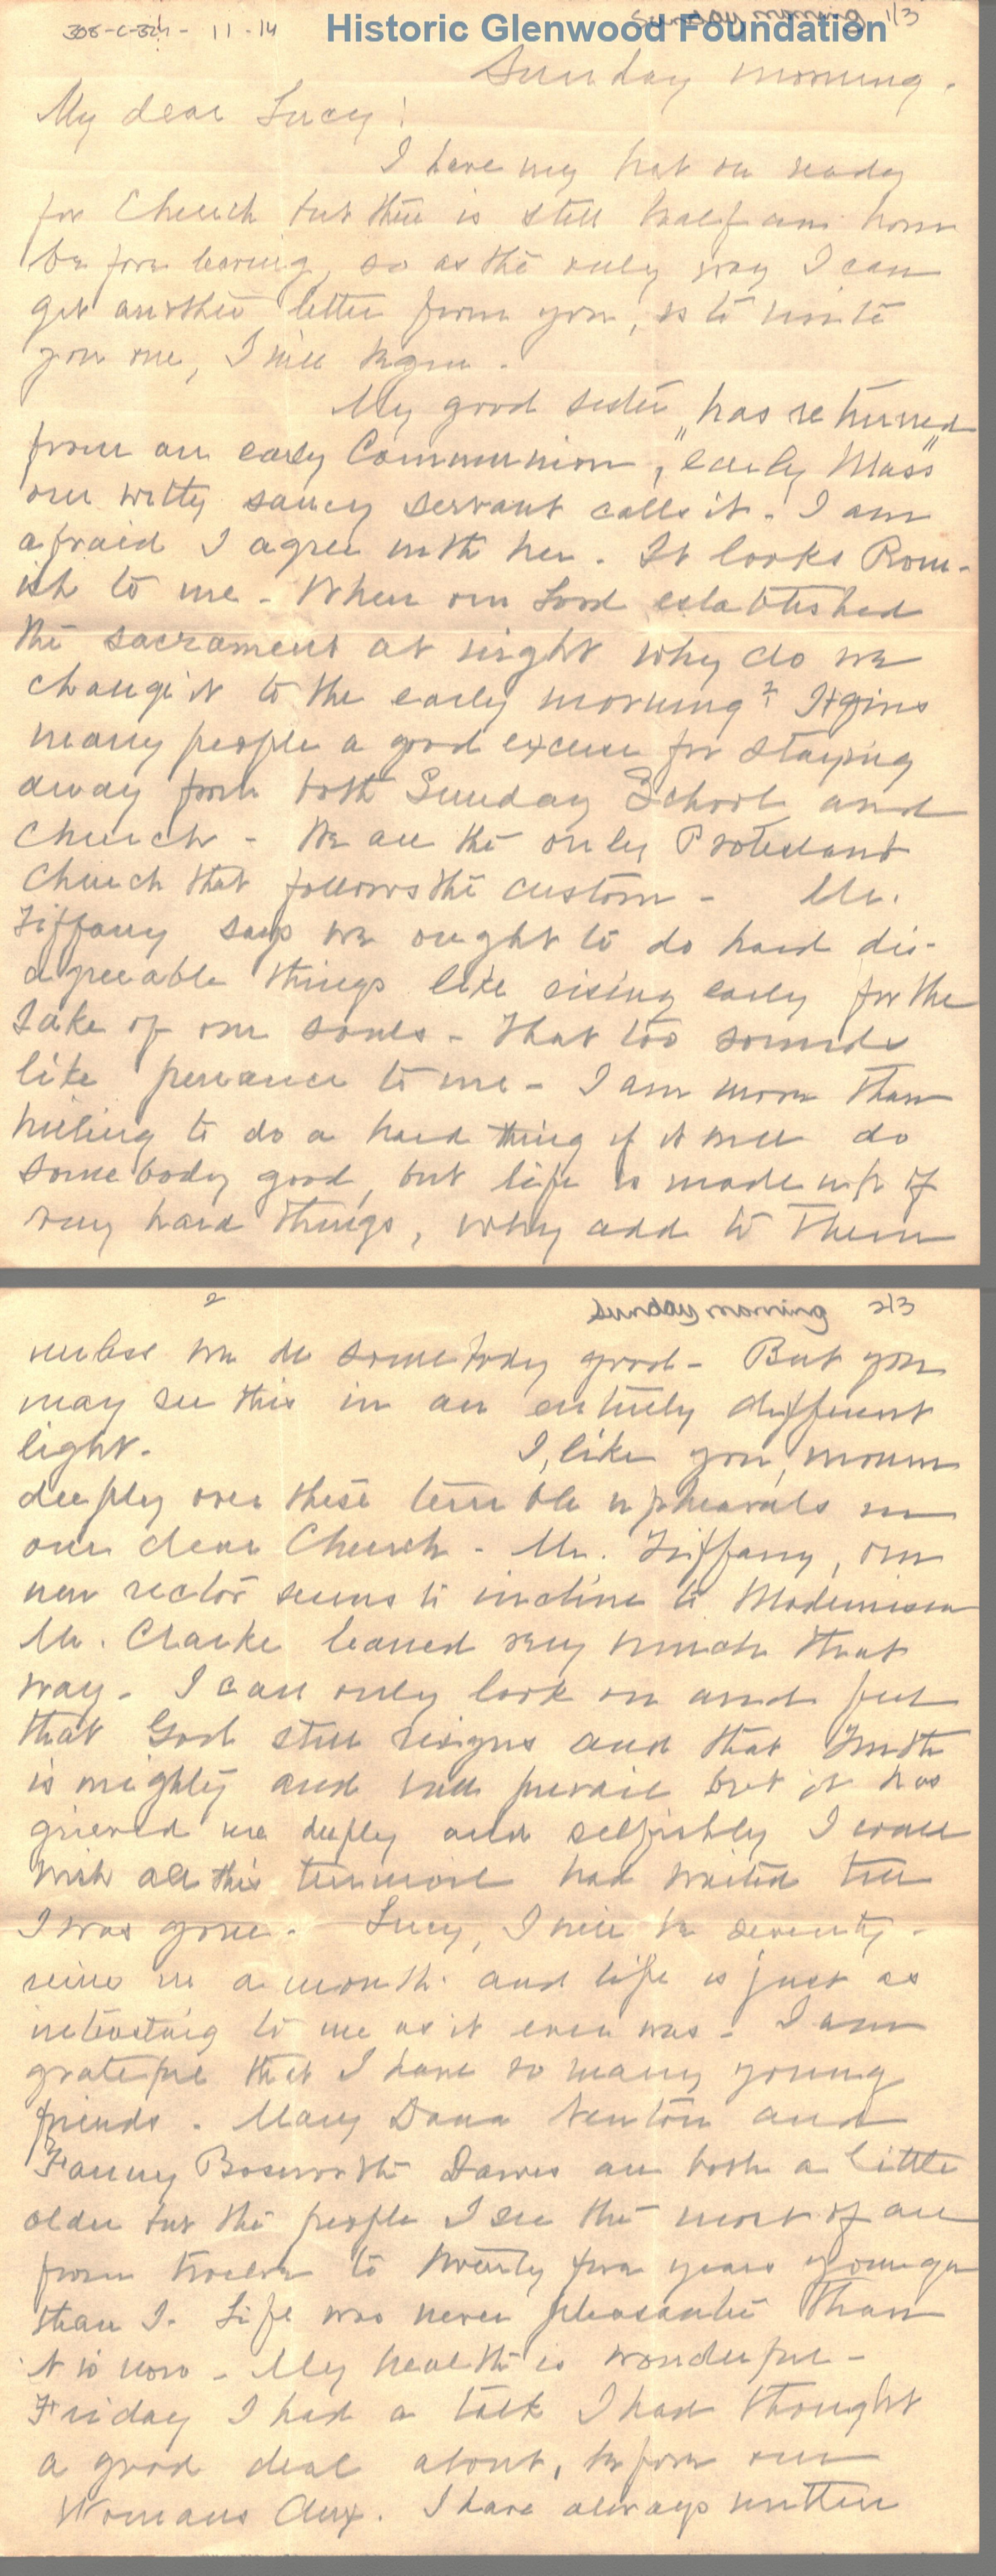 Sunday morning 1/3
308-C-324-11-14 Historic Glenwood Foundation
Sunday morning.
My dear Lucy!
I have my hat on ready
for Church but there is still half an hour
before leaving, so as the only way I can
get another letter from you, is to write
you one, I will begin.
My good sister has returned
from an early Communion, "early Mass"
our witty saucy servant calls it. I am
afraid I agree with her. It looks Rom-
ish to me - When our Lord established
the sacrament at night why do we
change it to the early morning? It gives
many people a good excuse for staying
away from both Sunday School and
Church - We are the only Protestant
Church that follows the custom - Mr.
Tiffany says we ought to do hard dis-
agreeable things like rising early for the
sake of our souls - That too sounds
like penance to me - I am more than
willing to do a hard thing if it will do
somebody good, but life is made up of
very hard things, why add to them
2 Sunday morning 2/3
unless we do somebody good - But you
may see this in an entirely different
light. I, like you, mourn
deeply over these terrible upheavals in
our dear Church - Mr. Tiffany, our
new rector seems to incline to Modernism
Mr. Clarke leaned very much that
way - I can only look on and feel
that God still reigns and that Truth
is mighty and will prevail but it has
grieved me deeply and selfishly I could
wish all this turmoil had waited till
I was gone. Lucy, I will be seventy-
nine in a month and life is just as
interesting to me as it ever was - I am
grateful that I have so many young
friends - Mary Dana and
Fanny Bosworth Dawes are both a little
older but the people I see the most of are
from twelve to twenty five years younger
than I. Life was never pleasanter than
it is now - My health is wonderful -
Friday I had a talk I had thought
a good deal about, before our
Womans Aux. I have always written